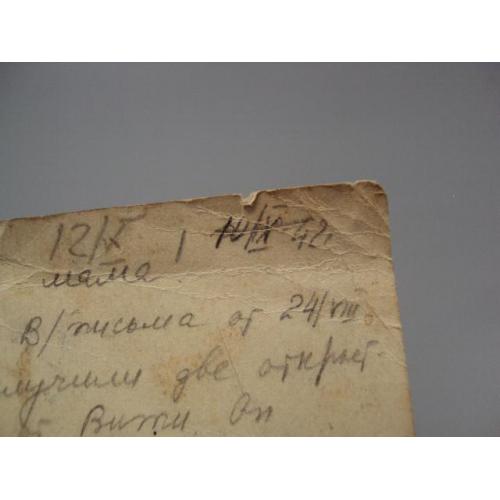 12/X 14/IX 42.
мама.
В/письма от 24/VIII
лучили две открыт-
Вити. Он